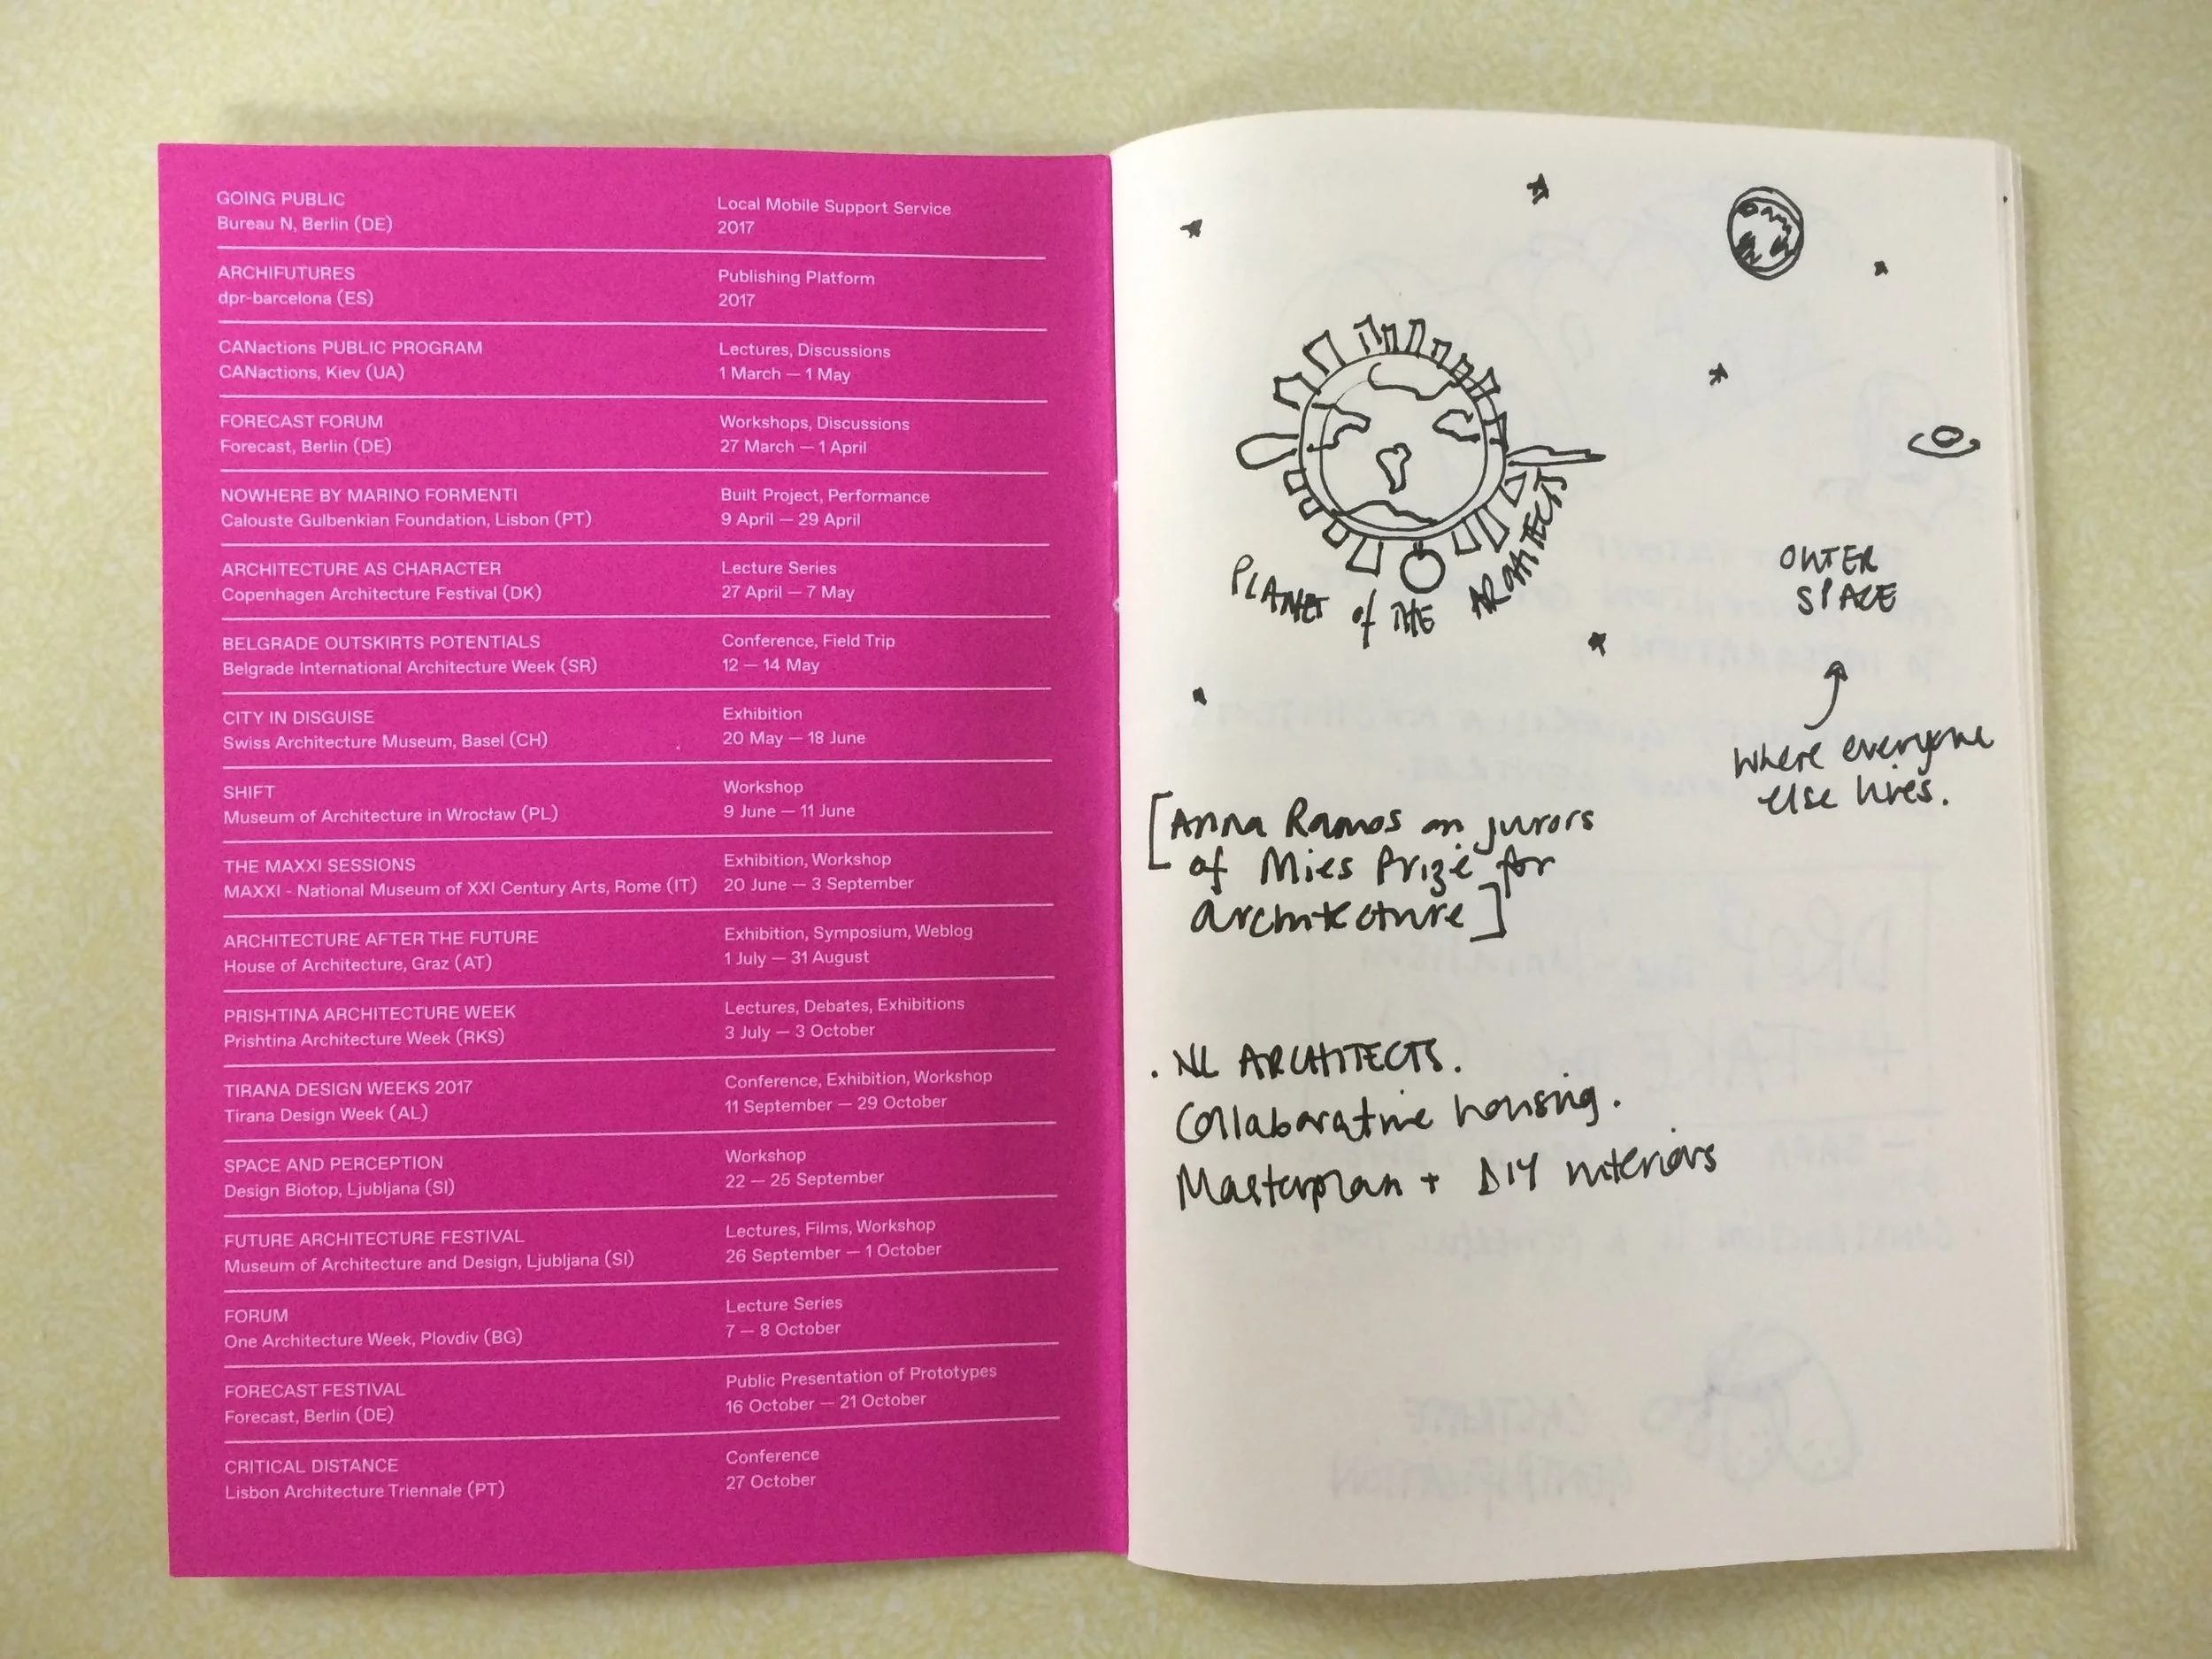 GOING PUBLIC
Bureau N, Berlin (DE)
Local Mobile Support Service
2017
ARCHIFUTURES
dpr-barcelona (ES)
Publishing Platform
2017
CANactions PUBLIC PROGRAM
CANactions, Kiev (UA)
Lectures, Discussions
1 March — 1 May
FORECAST FORUM
Forecast, Berlin (DE)
Workshops, Discussions
27 March — 1 April
NOWHERE BY MARINO FORMENTI
Calouste Gulbenkian Foundation, Lisbon (PT)
Built Project, Performance
9 April — 29 April
ARCHITECTURE AS CHARACTER
Copenhagen Architecture Festival (DK)
Lecture Series
27 April — 7 May
BELGRADE OUTSKIRTS POTENTIALS
Belgrade International Architecture Week (SR)
Conference, Field Trip
12 — 14 May
CITY IN DISGUISE
Swiss Architecture Museum, Basel (CH)
Exhibition
20 May — 18 June
SHIFT
Museum of Architecture in Wrocław (PL)
Workshop
9 June — 11 June
THE MAXXI SESSIONS
MAXXI - National Museum of XXI Century Arts, Rome (IT)
Exhibition, Workshop
20 June — 3 September
ARCHITECTURE AFTER THE FUTURE
House of Architecture, Graz (AT)
Exhibition, Symposium, Weblog
1 July — 31 August
PRISHTINA ARCHITECTURE WEEK
Prishtina Architecture Week (RKS)
Lectures, Debates, Exhibitions
3 July — 3 October
TIRANA DESIGN WEEKS 2017
Tirana Design Week (AL)
Conference, Exhibition, Workshop
11 September — 29 October
SPACE AND PERCEPTION
Design Biotop, Ljubljana (SI)
Workshop
22 — 25 September
FUTURE ARCHITECTURE FESTIVAL
Museum of Architecture and Design, Ljubljana (SI)
Lectures, Films, Workshop
26 September — 1 October
FORUM
One Architecture Week, Plovdiv (BG)
Lecture Series
7 — 8 October
FORECAST FESTIVAL
Forecast, Berlin (DE)
Public Presentation of Prototypes
16 October — 21 October
CRITICAL DISTANCE
Lisbon Architecture Triennale (PT)
Conference
27 October
PLANET of THE ARCHITECTS
OUTER
SPACE
where everyone
else lives.
[Anna Ramos on jurors
of Mies Prize for
architecture]
. NL ARCHITECTS.
Collaborative housing.
Masterplan + DIY interiors